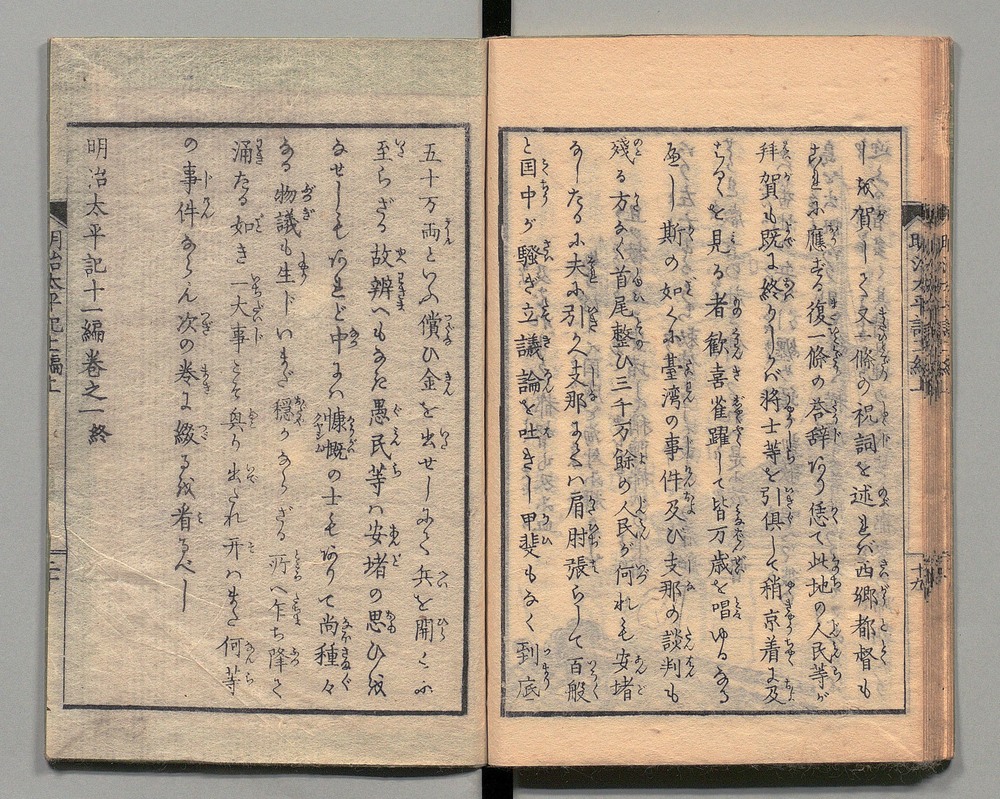 し祝賀して又一條の祝詞を述れバ西郷都督も
これに應ずる復一條の答辞あり恁て此地の人民等が
拝賀も既に終りしかバ将士等を引倶して稍京着に及
ばるゝを見る者歓喜雀躍して皆万歳を唱ゆるなる
べし斯の如くに臺湾の事件及び支那の談判も
残る方なく首尾整ひ三千万餘の人民が何れも安堵
なしたるに夫に引かへ支那にてハ肩肘張らして百般
と国中が騒ぎ立議論を吐きし甲斐もなく到底
五十万両といふ償ひ金を出せしにて兵を開くに
至らざる故辨へもなき愚民等ハ安堵の思ひを
なせしもありけれど中にハ慷慨の士もありて尚種々
なる物議も生じいまだ穏かならざる所へ乍ち降て
涌たる如き一大事こそ興り出たれ开ハまた何等
の事件ならん次の巻に綴るを看るべし
明治太平記十一編巻之一終
明治太平記十一編上
十九